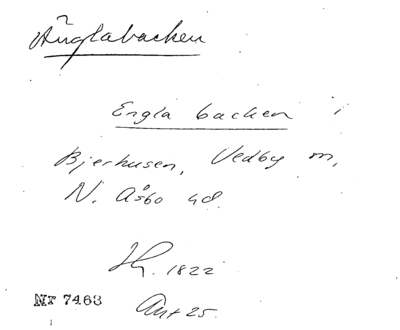 Änglabacken
Engla backen i
Bjerhusen, Vedby sn,
N. Åsbo hd.
1822
Nr 7463
Ant 25.